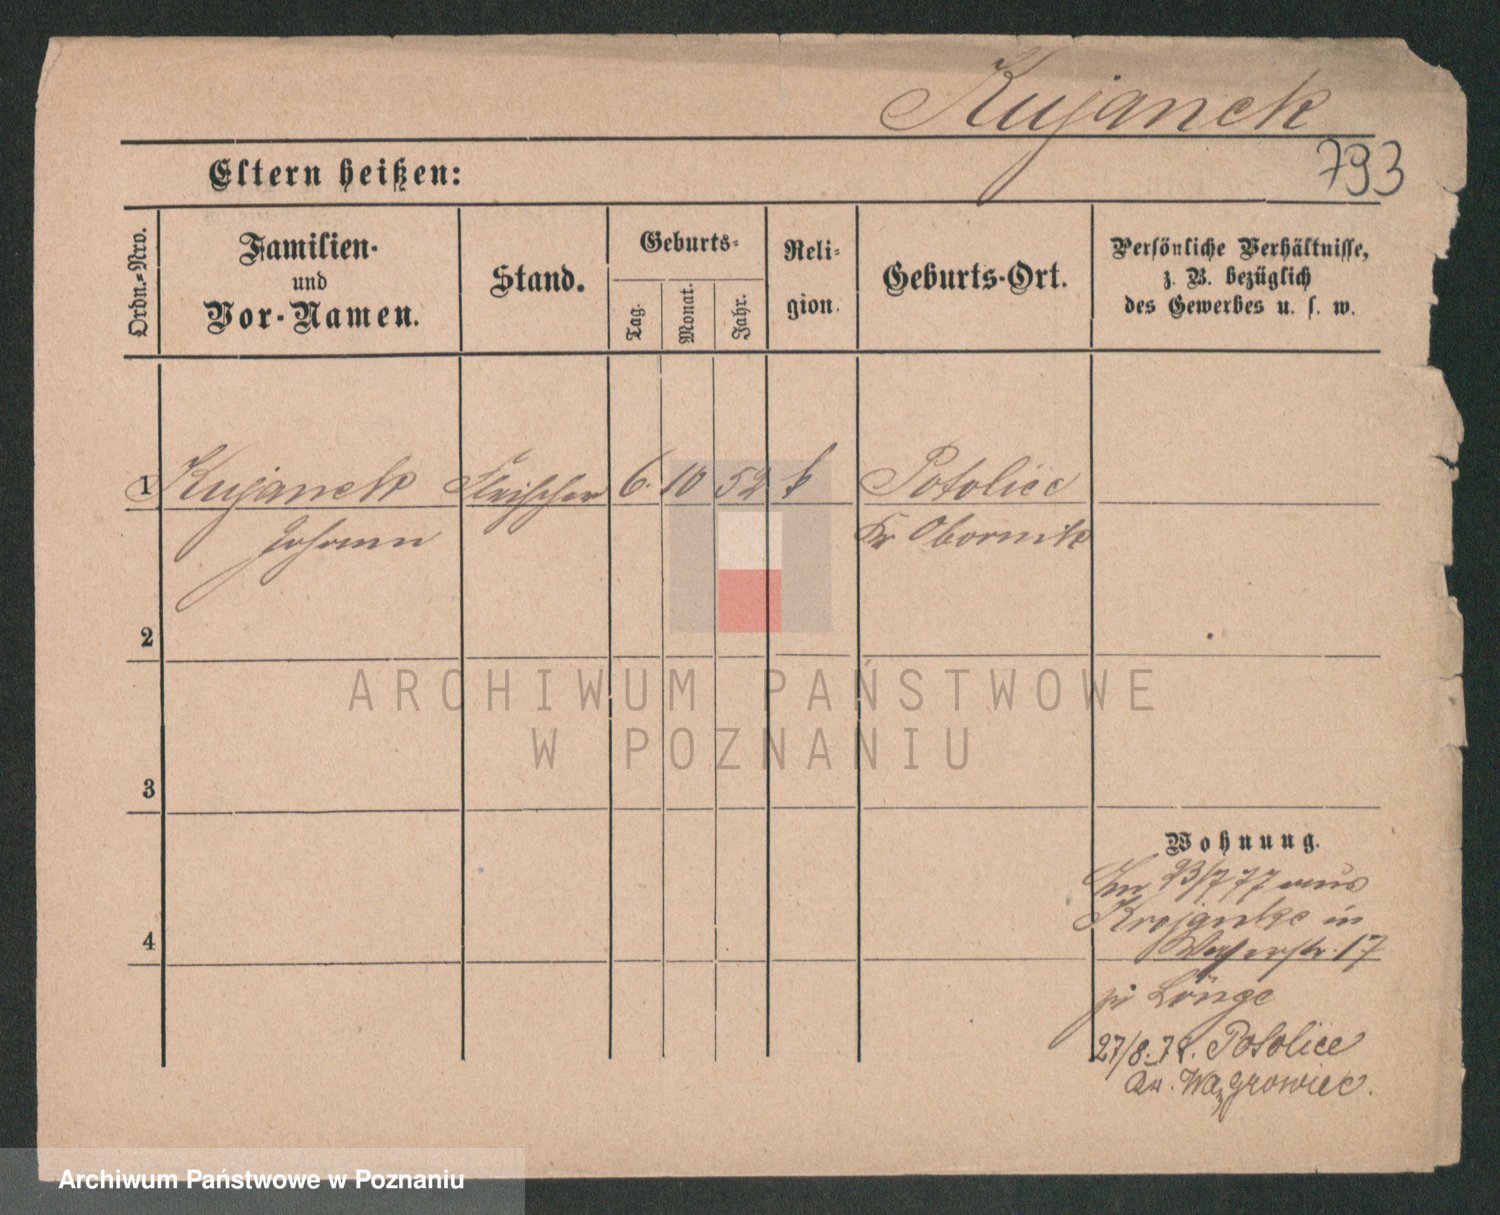 Kujanek
793
Eltern heißen:
Ordn.-Nro.
Familien-
und
Vor-Namen.
Stand.
Geburts-
Tag.
Monat.
Jahr.
Reli-
gion.
Geburts-Ort.
Persönliche Verhältnisse,
z. B. bezüglich
des Gewerbes u. s. w.
1 Kujanek Fleischer 6. 10 52 k Potolice
Johann Kr Obornik
2
ARCHIWUM PAŃSTWOWE
W POZNANIU
3
Wohnung.
23/7 77 aus
Krojanke in
4
Wasserstr. 17
Lönge
27/8. 78. Potolice
Kr. Wągrowiec.
Archiwum Państwowe w Poznaniu